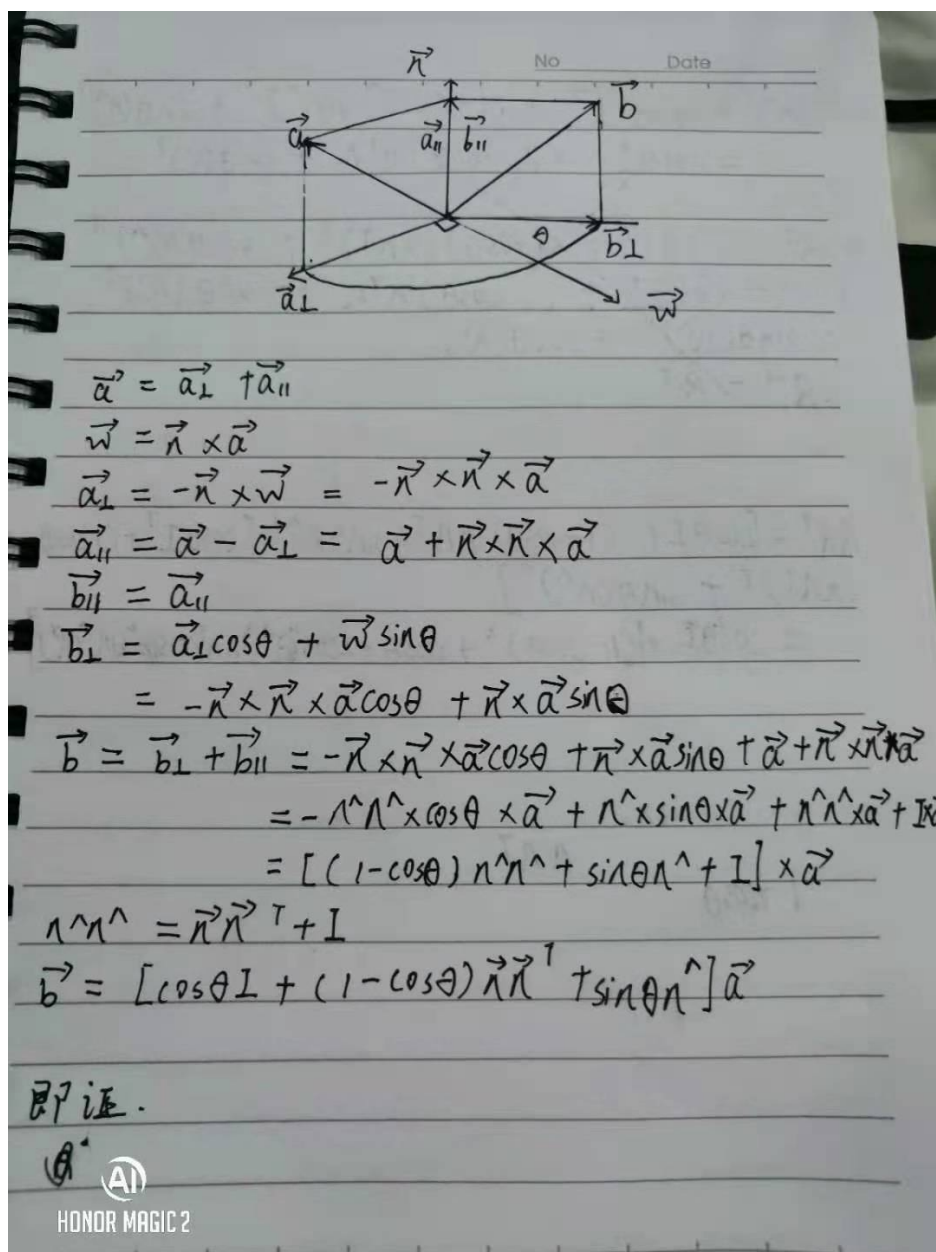 No Date
n⃗
b⃗
a⃗
a⃗∥ b⃗∥
θ
b⃗⊥
a⃗⊥
w⃗
a⃗ = a⃗⊥ + a⃗∥
w⃗ = n⃗ × a⃗
a⃗⊥ = -n⃗ × w⃗ = -n⃗ × n⃗ × a⃗
a⃗∥ = a⃗ - a⃗⊥ = a⃗ + n⃗ × n⃗ × a⃗
b⃗∥ = a⃗∥
b⃗⊥ = a⃗⊥cosθ + w⃗ sinθ
= -n⃗ × n⃗ × a⃗cosθ + n⃗ × a⃗ sinθ
b⃗ = b⃗⊥ + b⃗∥ = -n⃗ × n⃗ × a⃗cosθ + n⃗ × a⃗sinθ + a⃗ + n⃗ × n⃗ × a⃗
= -n^n^ × cosθ × a⃗ + n^ × sinθ × a⃗ + n^n^ × a⃗ + I×
= [(1-cosθ) n^n^ + sinθn^ + I] × a⃗
n^n^ = n⃗n⃗ᵀ + I
b⃗ = [cosθI + (1-cosθ) n⃗n⃗ᵀ + sinθn^] a⃗
即证.
AI
HONOR MAGIC 2